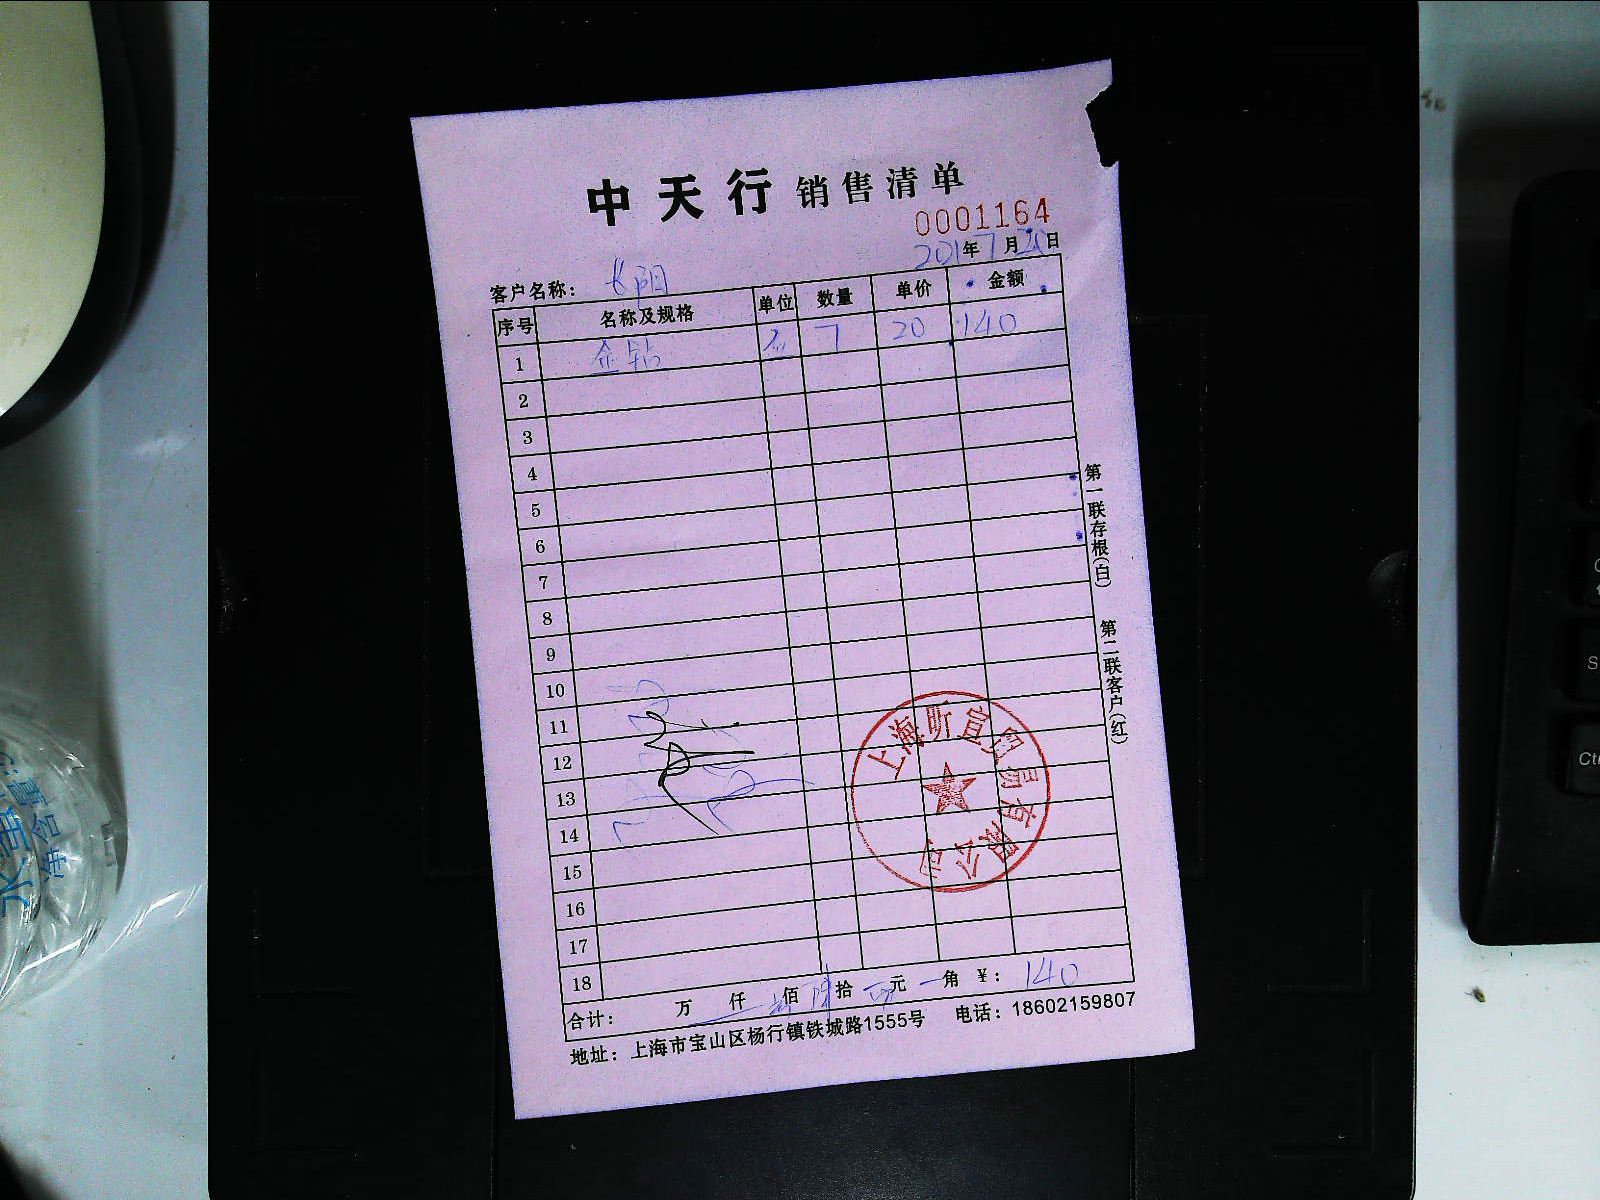 中天行 销售清单
0001164
年7月20日
客户名称： 长阳
序号 名称及规格 单位 数量 单价 金额
1 金钻 7 20 140
2
3
4
5
6
7
8
9
10
11
12
13
14
15
16
17
18
合计： 万 仟 佰 拾 元 角 ￥： 140
地址：上海市宝山区杨行镇铁城路1555号 电话：18602159807
第一联存根(白) 第二联客户(红)
上海昕宣贸易有限公司
净含量
Ctr